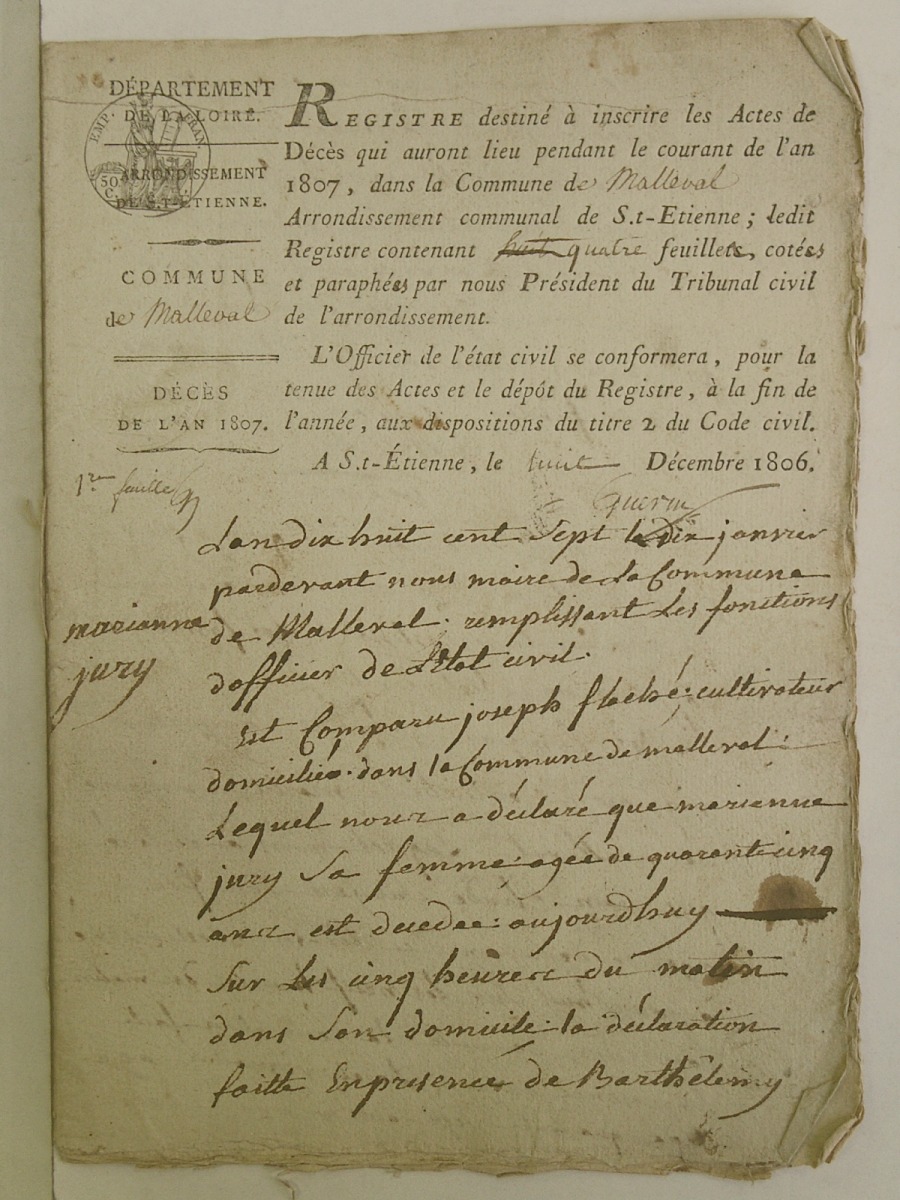 DÉPARTEMENT
DE LA LOIRE.
EMP. FRAN.
50
C.
ARRONDISSEMENT
DE S.T-ÉTIENNE.
COMMUNE
de Malleval
DÉCÈS
DE L'AN 1807.
REGISTRE destiné à inscrire les Actes de
Décès qui auront lieu pendant le courant de l'an
1807, dans la Commune de Malleval
Arrondissement communal de S.t-Etienne; ledit
Registre contenant huit quatre feuillets, cotées
et paraphées par nous Président du Tribunal civil
de l'arrondissement.
L'Officier de l'état civil se conformera, pour la
tenue des Actes et le dépôt du Registre, à la fin de
l'année, aux dispositions du titre 2 du Code civil.
A S.t-Étienne, le huit Décembre 1806.
1er feuille
Guerin
marianne
jury
Lan dix huit cent Sept le dix janvier
pardevant nous maire de la Commune
de Malleval. remplissant Les fonctions
dofficier de Letat civil.
Est Comparu joseph flaché; cultivateur
domicilié. dans la Commune de malleval:
Lequel nous a déclaré que marianne
jury Sa femme agée de quarante cinq
ans est decedee: aujourdhuy
Sur Les cinq heures du matin
dans Son domicile: la déclaration
faitte En presencé de Barthêlemy